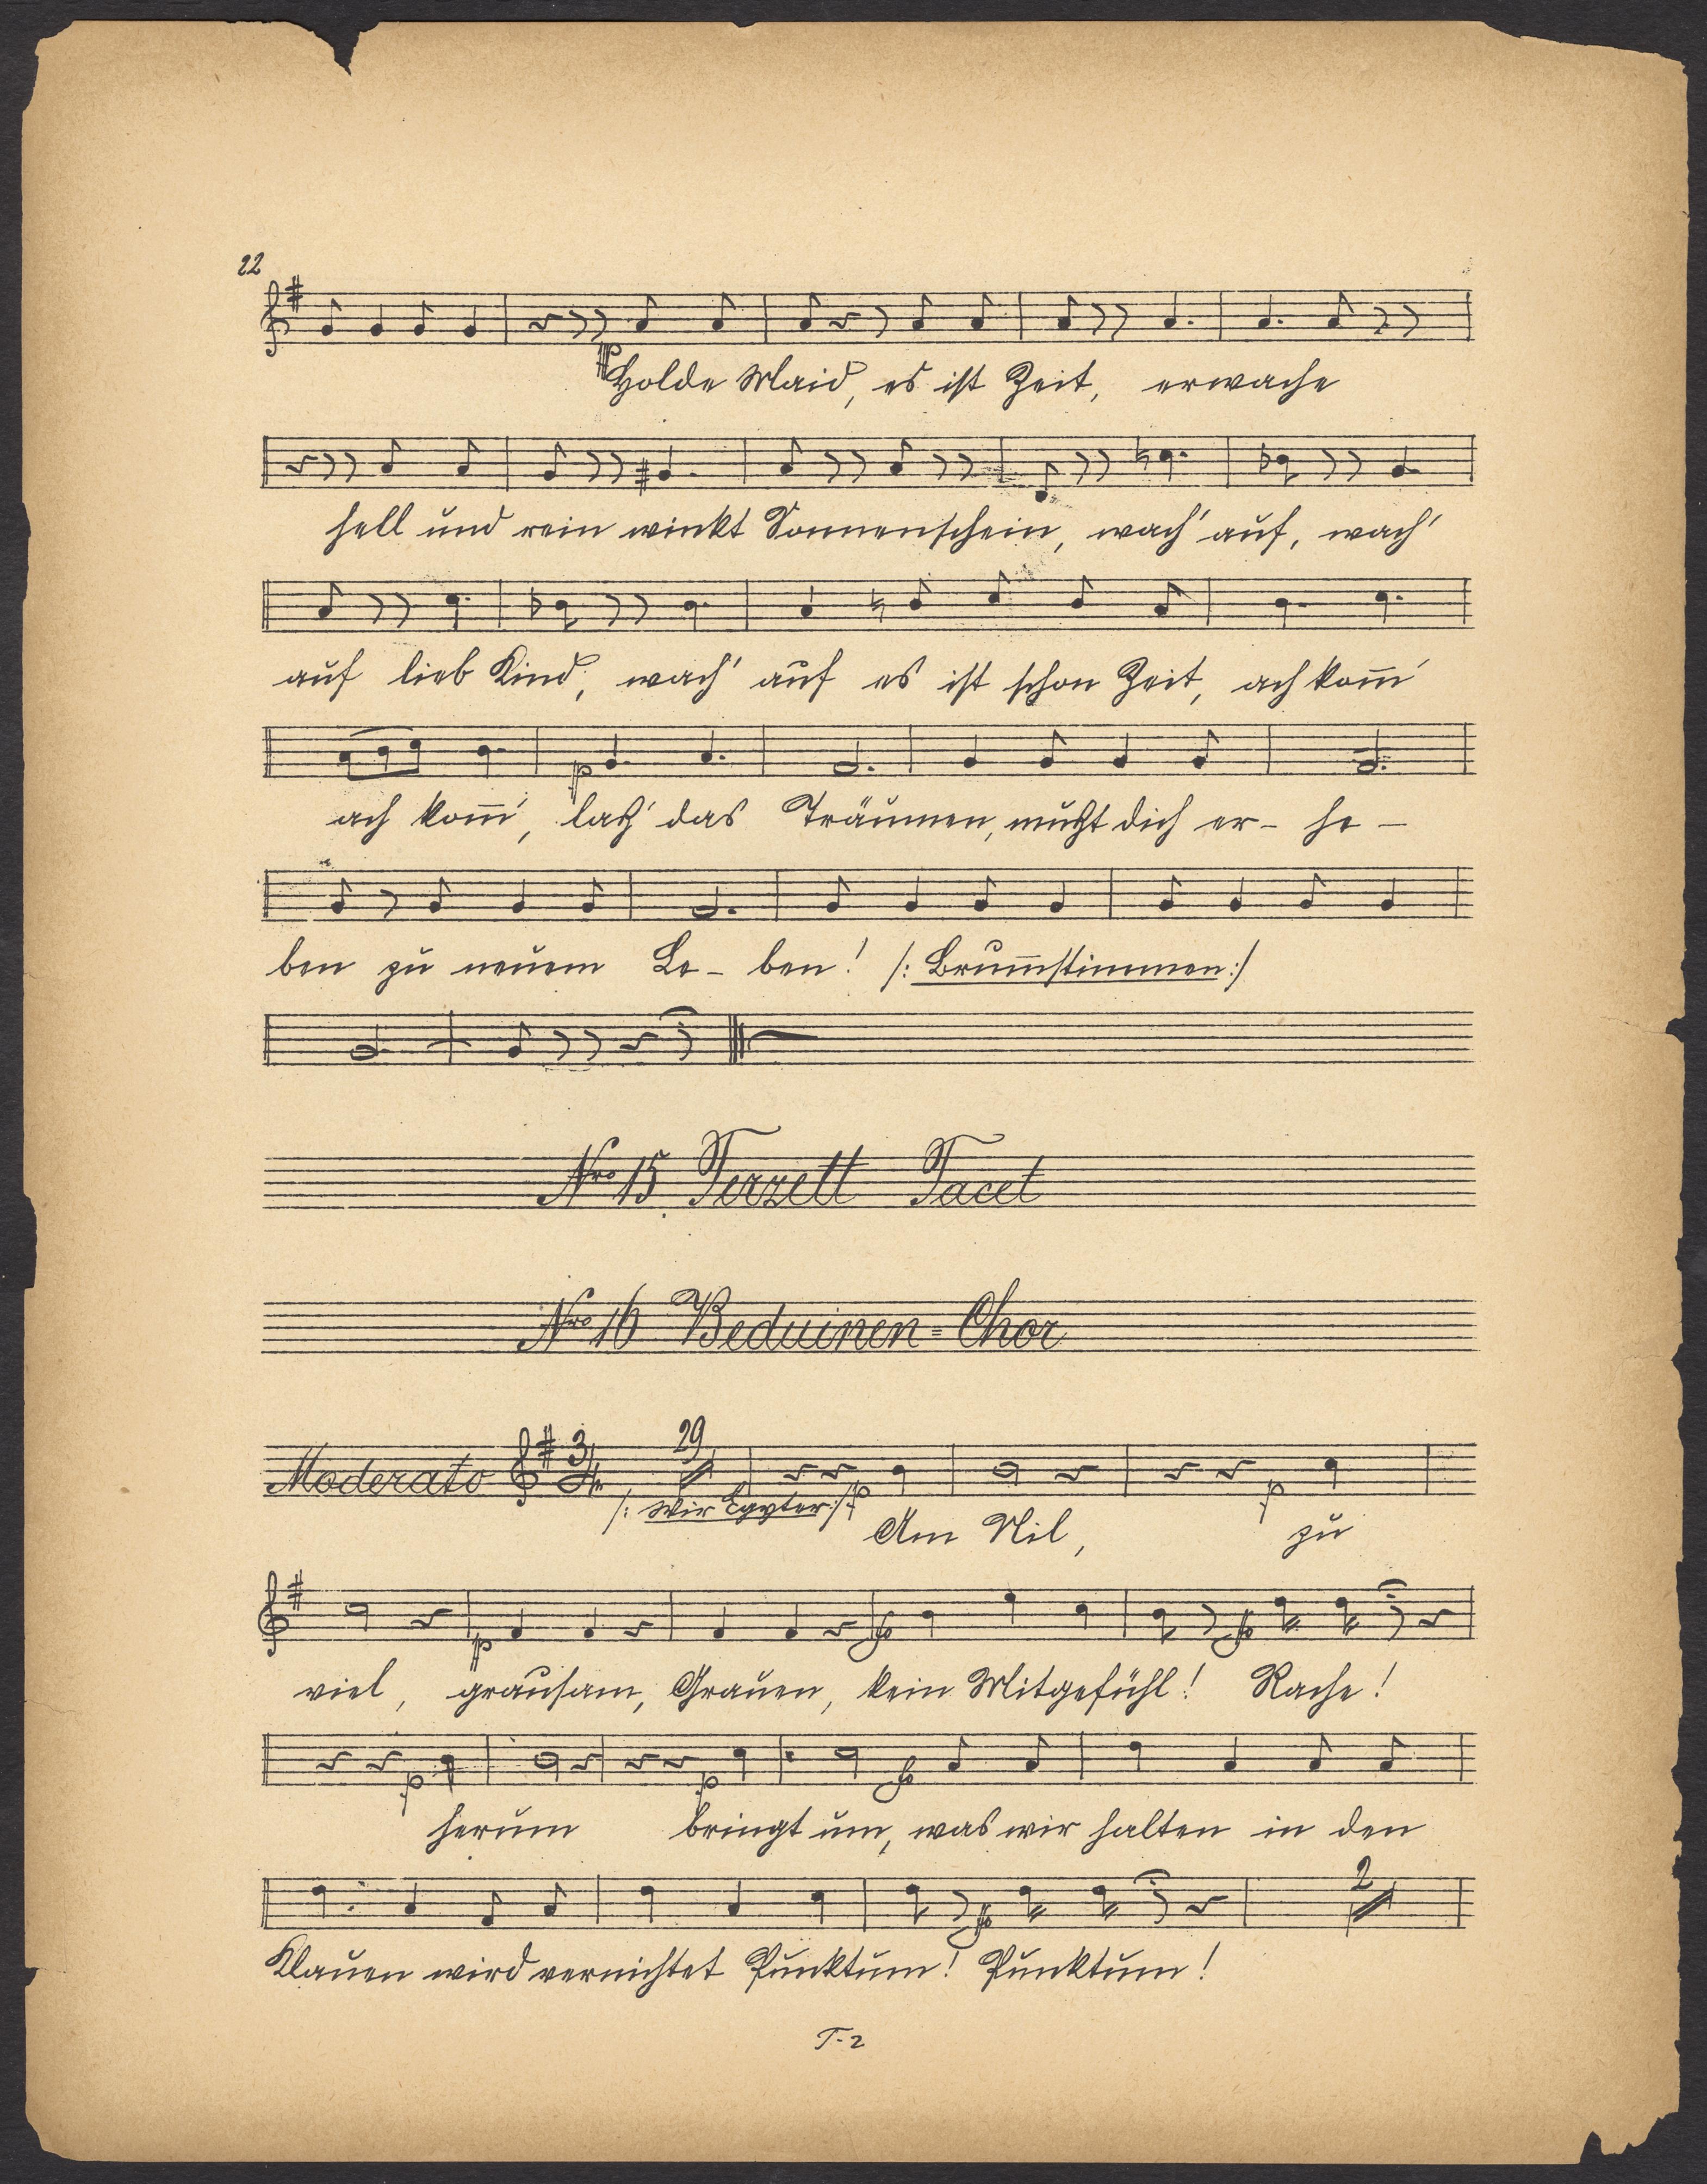 22
pp
Holde Maid, es ist Zeit, erwache
hell und rein winkt Sonnenschein, wach' auf, wach'
auf lieb Kind, wach' auf es ist schon Zeit, ach kom̅'
p
ach kom̅', laß' das Träumen, mußt dich er- he-
ben zu neuem Le- ben! /: Brum̅stimmen :/
Nro 15 Terzett Tacet
Nro 16 Beduinen = Chor
Moderato 3/4 29 p p
/: Wir Egypter :/
Am Nil, zu
p
viel, grausam, Grauen, kein Mitgefühl! Rache!
p p
herum bringt um, was wir halten in den
2
Klauen wird vernichtet Punktum! Punktum!
T-2